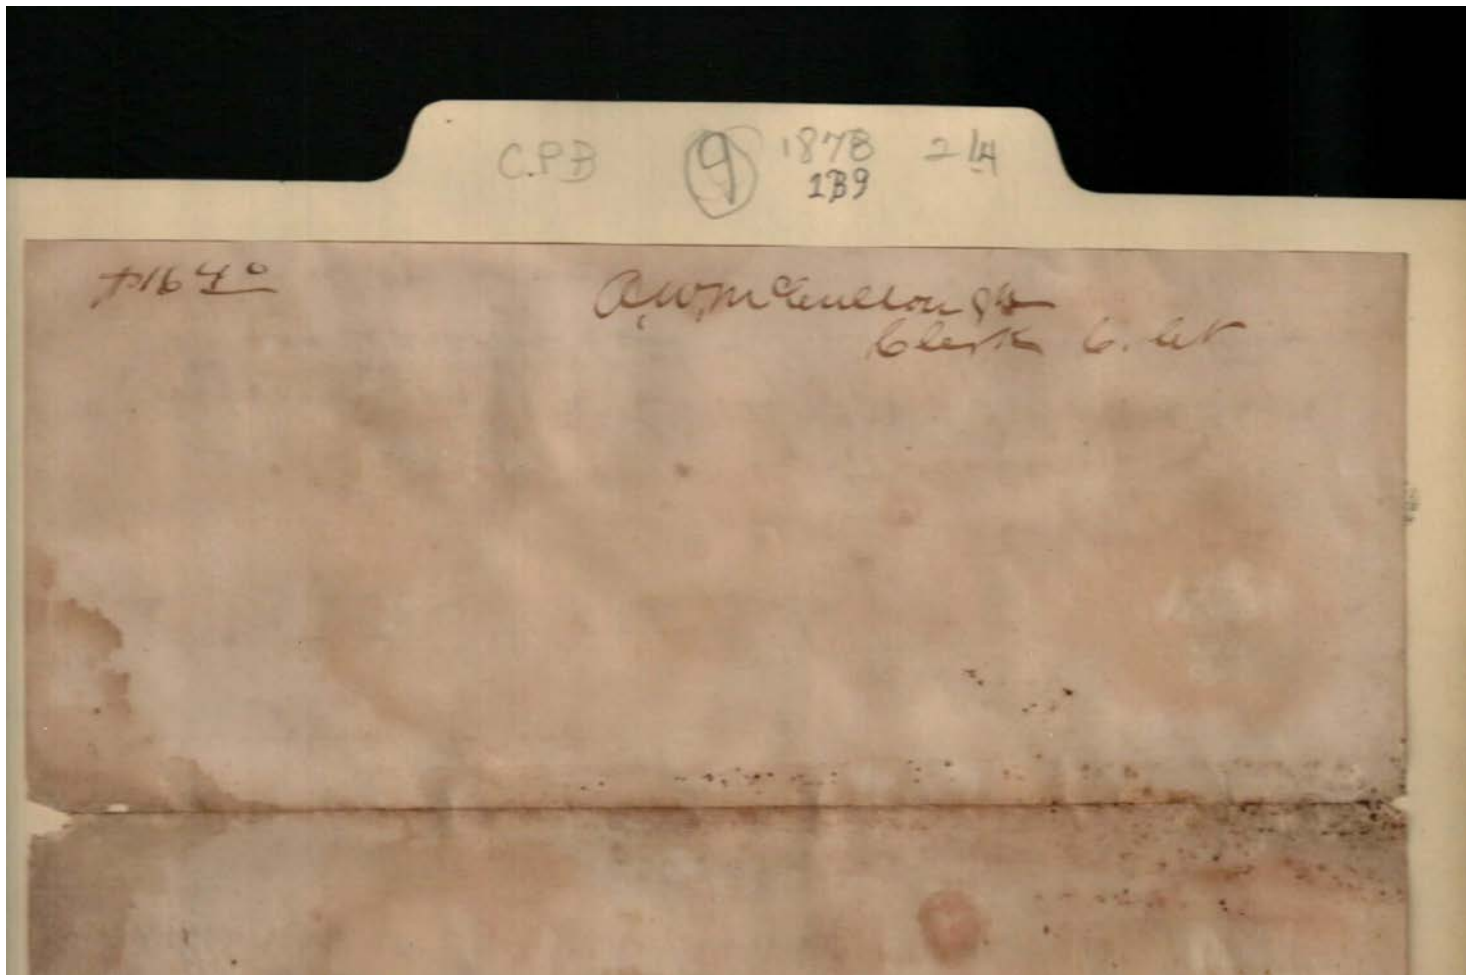 C.P.B 9 1878 2/4
1B9
$16 40
A.W. McCullough
Clerk C. Ct